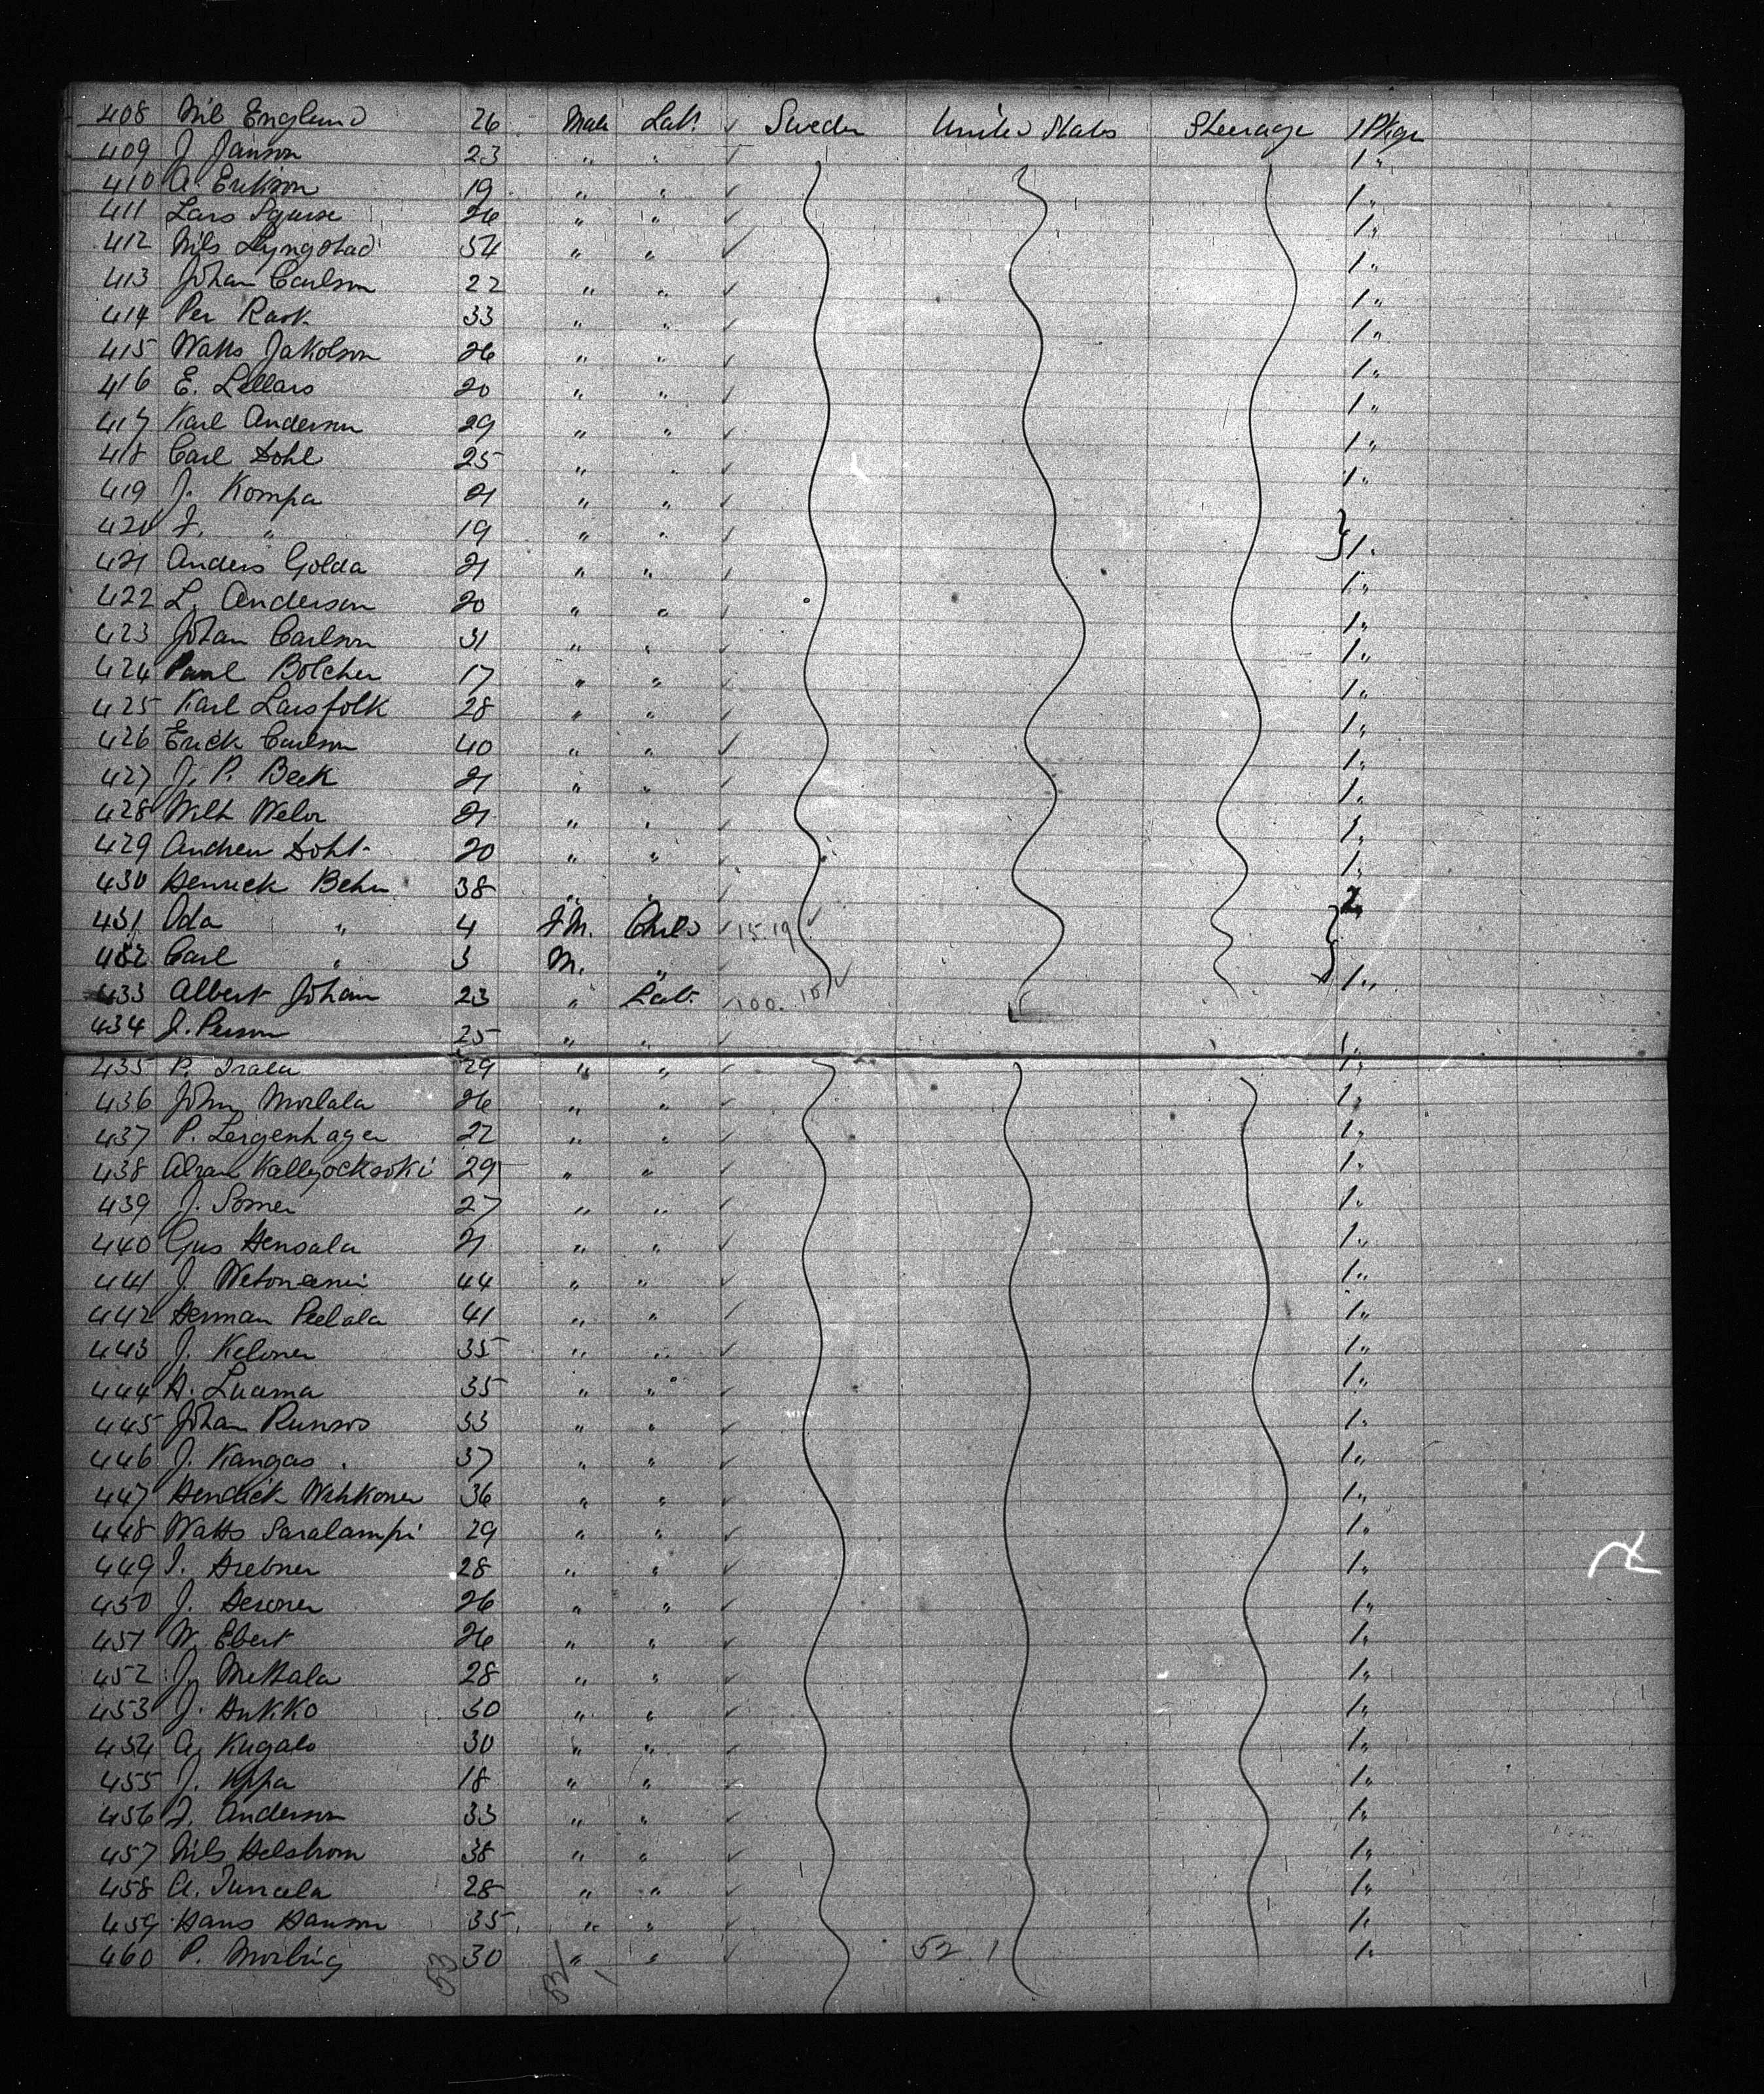 408 Nils Englund 26 Male Lab. ✓ Sweden United States Steerage 1 Pkge
409 J Janson 23 " " ✓ 1 "
410 A. Erikson 19 " " ✓ 1 "
411 Lars 26 " " ✓ 1 "
412 Nils Lyngstad 34 " " ✓ 1 "
413 Johan Carlson 22 " " ✓ 1 "
414 Per Rask 33 " " ✓ 1 "
415 Watts Jakolson 26 " " ✓ 1 "
416 E. Lellars 20 " " ✓ 1 "
417 Karl Anderson 29 " " ✓ 1 "
418 Carl Dohl 25 " " ✓ 1 "
419 J. Kompa 21 " " ✓
420 J. " 19 " " ✓ } 1 "
421 Anders Golda 21 " " ✓ 1 "
422 L. Anderson 20 " " ✓ 1 "
423 Johan Carlson 31 " " ✓ 1 "
424 Paul Bolcher 17 " " ✓ 1 "
425 Karl Larsfolk 28 " " ✓ 1 "
426 Erick Carlson 40 " " ✓ 1 "
427 J. P. Beck 21 " " ✓ 1 "
428 Wilh Welor 21 " " ✓ 1 "
429 Andrew Dohl 20 " " ✓ 1 "
430 Henrick Behn 38 " " ✓ 2
431 Oda " 4 Child ✓ 15.19 ✓
432 Carl " 3 M. " ✓ }
433 Albert Johan 23 " Lab. ✓ 100. 1 "
434 J. Person 25 " " ✓ 1 "
435 P. 29 " " ✓ 1 "
436 John Morlala 26 " " ✓ 1 "
437 P. Lergenhager 22 " " ✓ 1 "
438 Kallyocksoki 29 " " ✓ 1 "
439 J. Somer 27 " " ✓ 1 "
440 Gus Hensala 21 " " ✓ 1 "
441 J. 44 " " ✓ 1 "
442 Herman Peelala 41 " " ✓ 1 "
443 J. Keloner 35 " " ✓ 1 "
444 H. Luama 35 " " ✓ 1 "
445 Johan 33 " " ✓ 1 "
446 J. Kangas 37 " " ✓ 1 "
447 Hendick Wihkoner 36 " " ✓ 1 "
448 Watts Saralampi 29 " " ✓ 1 "
449 28 " " ✓ 1 "
450 J. Heroner 26 " " ✓ 1 "
451 W. Ebert 26 " " ✓ 1 "
452 J. Mettala 28 " " ✓ 1 "
453 J. Hukko 30 " " ✓ 1 "
454 A. Kugalo 30 " " ✓ 1 "
455 J. 18 " " ✓ 1 "
456 J. Anderson 33 " " ✓ 1 "
457 Nils Helstrom 38 " " ✓ 1 "
458 A. 28 " " ✓ 1 "
459 Hans Hanson 35 " " ✓ 1 "
460 P. 30 " " ✓ 52.1 1 "
53